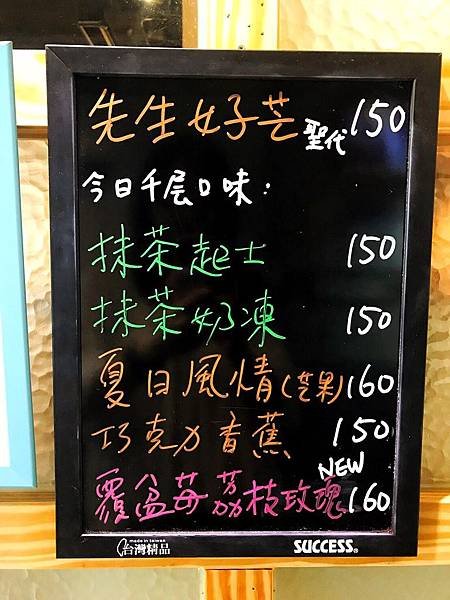 先生好芒聖代 150
今日千层口味:
抹茶起士 150
抹茶奶凍 150
夏日風情(芒果) 160
巧克力香蕉 150
NEW
覆盆莓荔枝玫瑰 160
made in taiwan
台灣精品 SUCCESS®